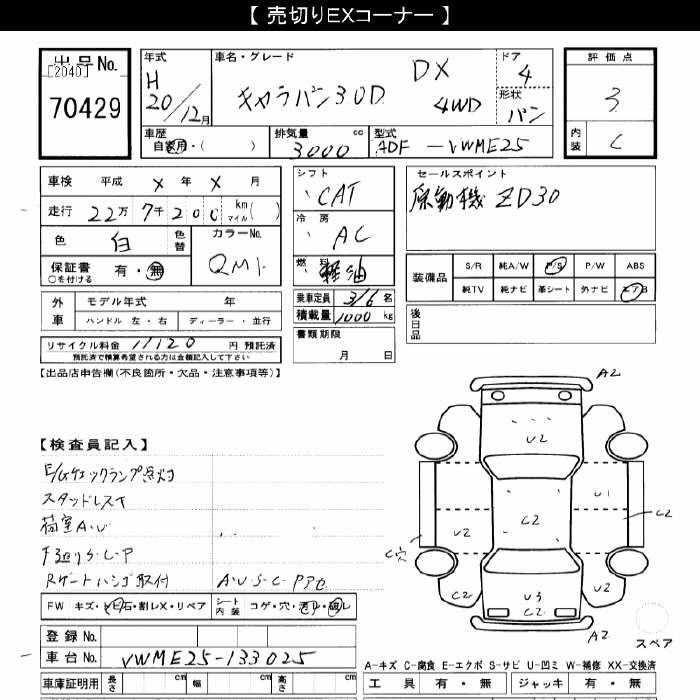 【 売切りEXコーナー 】
出品No.
[2040]
70429
年式 H 20/12月
車名・グレード キャラバン30D DX 4WD
ドア 4
形状 バン
評価点 3
内装 C
車歴 自家用・( )
排気量 3000 cc
型式 ADF-VWME25
車検 平成 X 年 X 月
走行 22万 7千 200 km マイル( )
色 白 色替
カラーNo. QM1
保証書 有・無
○を付ける
外車 モデル年式 年
ハンドル 左・右 ディーラー・並行
リサイクル料金 11120 円 預託済
預託済で精算希望される方は金額記入して下さい
シフト CAT
冷房 AC
燃料 軽油
乗車定員 3/6 名
積載量 1000 kg
書類期限 月 日
セールスポイント
原動機 ZD30
装備品 S/R 純A/W P/S P/W ABS
純TV 純ナビ 革シート 外ナビ エアB
後日品
【出品店申告欄(不良箇所・欠品・注意事項等)】
【検査員記入】
E/Gチェックランプ点灯
スタッドレスT
荷室A・U
下廻りS・C・P
Rゲートハシゴ取付
A・U・S・C・Pアセ
FW キズ・トビ石・割レX・リペア シート内装 コゲ・穴・汚レ・破レ
登録No.
車台No. VWME25-133025
車庫証明用 長さ cm 幅 cm 高さ cm
A2
U2
U1
C2
C2
U2
C穴
C2
U2
U3
C2
A2
スペア
A-キズ C-腐食 E-エクボ S-サビ U-凹ミ W-補修 XX-交換済
工具 有・無 ジャッキ 有・無